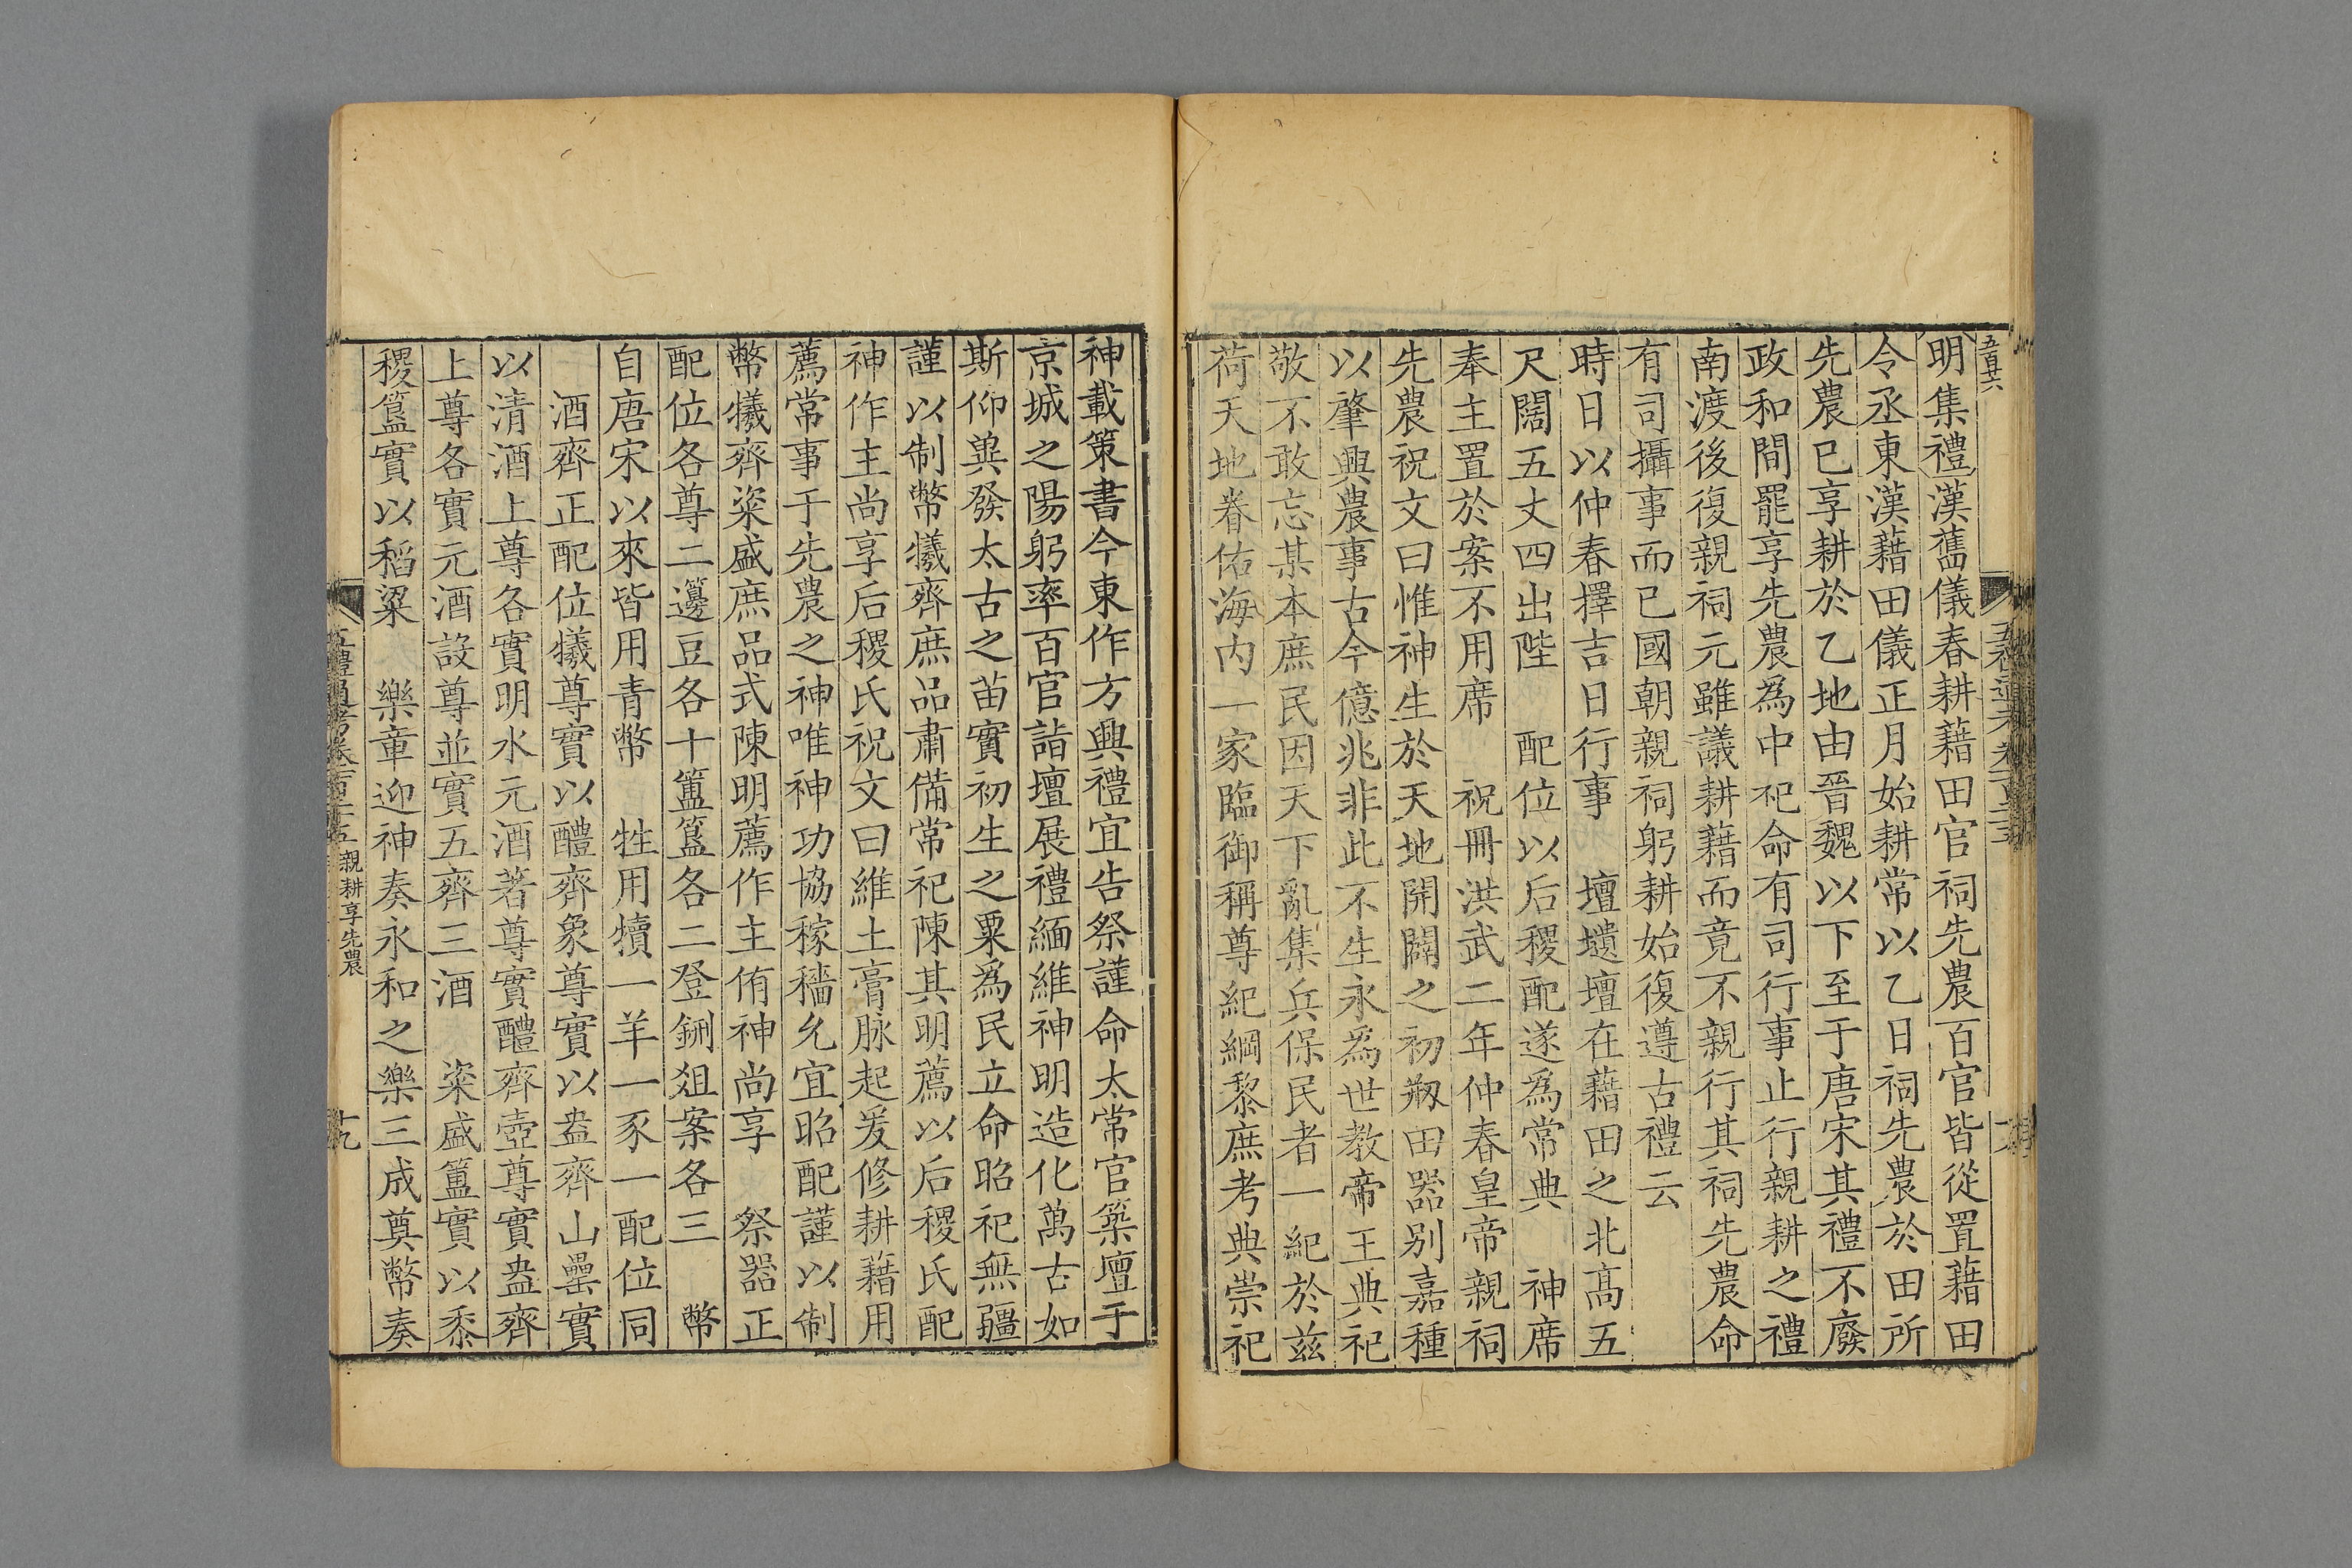 明集禮漢舊儀春耕藉田官祠先農百官皆從置藉田
令丞東漢藉田儀正月始耕常以乙日祠先農於田所
先農已享耕於乙地由晉魏以下至于唐宋其禮不廢
政和間罷享先農為中祀命有司行事止行親耕之禮
南渡後復親祠元雖議耕藉而竟不親行其祠先農命
有司攝事而已國朝親祠躬耕始復遵古禮云
時日以仲春擇吉日行事　壇壝壇在藉田之北高五
尺闊五丈四出陛　配位以后稷配遂為常典　神席
奉主置於案不用席　祝冊洪武二年仲春皇帝親祠
先農祝文曰惟神生於天地開闢之初剏田器別嘉種
以肇興農事古今億兆非此不生永為世教帝王典祀
敬不敢忘某本庶民因天下亂集兵保民者一紀於茲
荷天地眷佑海內一家臨御稱尊紀綱黎庶考典崇祀
神載策書今東作方興禮宜告祭謹命太常官築壇于
京城之陽躬率百官詣壇展禮緬維神明造化萬古如
斯仰冀發太古之苗實初生之粟為民立命昭祀無疆
謹以制幣犧齊庶品肅備常祀陳其明薦以后稷氏配
神作主尚享后稷氏祝文曰維土膏脉起爰修耕藉用
薦常事于先農之神唯神功協稼穡允宜昭配謹以制
幣犧齊粢盛庶品式陳明薦作主侑神尚享　祭器正
配位各尊二籩豆各十簠簋各二登鉶俎案各三　幣
自唐宋以來皆用青幣　牲用犢一羊一豕一配位同
酒齊正配位犧尊實以醴齊象尊實以盎齊山罍實
以清酒上尊各實明水元酒著尊實醴齊壺尊實盎齊
上尊各實元酒設尊並實五齊三酒　粢盛簠實以黍
稷簋實以稻粱　樂章迎神奏永和之樂三成奠幣奏
五禮通考卷一百二十五　親耕享先農　十九